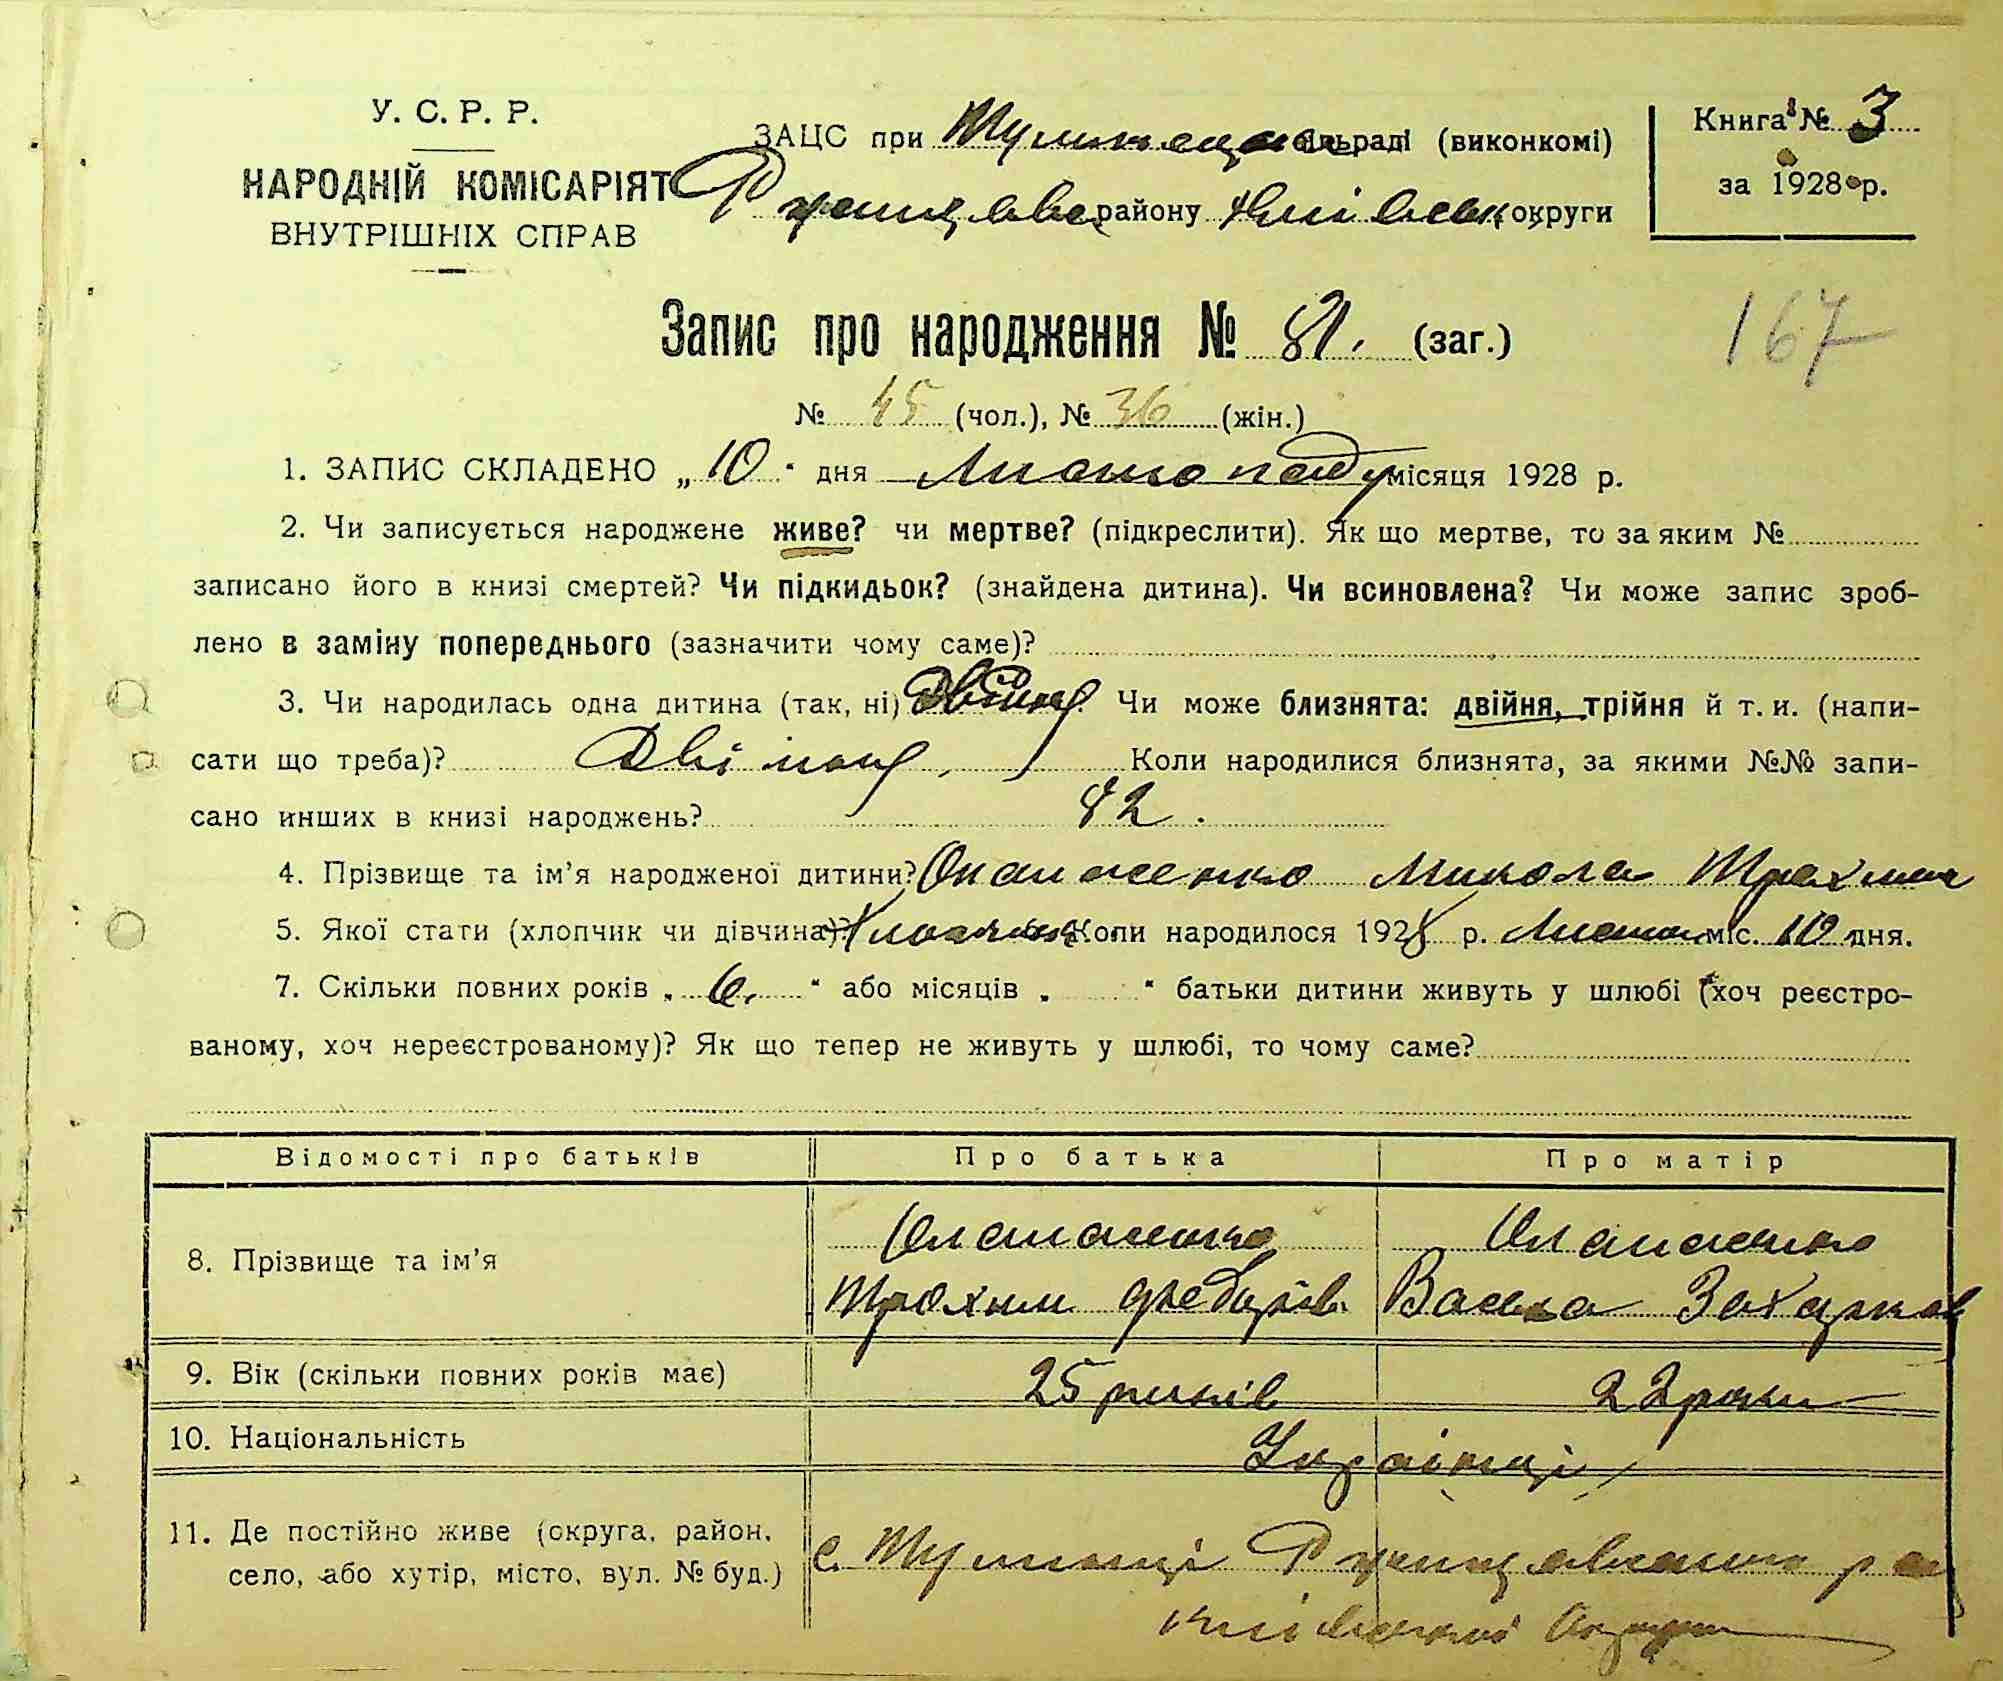 У. С. Р. Р.
НАРОДНІЙ КОМІСАРІЯТ
ВНУТРІШНІХ СПРАВ
ЗАЦС при сільраді (виконкомі)
району Київськ. округи
Книга № 3
за 1928 р.
167
Запис про народження № 81. (заг.)
№ 45 (чол.), № 36 (жін.)
1. ЗАПИС СКЛАДЕНО „ 10 " дня Листопаду місяця 1928 р.
2. Чи записується народжене живе? чи мертве? (підкреслити). Як що мертве, то за яким №
записано його в книзі смертей? Чи підкидьок? (знайдена дитина). Чи всиновлена? Чи може запис зроб-
лено в заміну попереднього (зазначити чому саме)?
3. Чи народилась одна дитина (так, ні) Двійня. Чи може близнята: двійня, трійня й т. и. (напи-
сати що треба)? Двійня Коли народилися близнята, за якими №№ запи-
сано инших в книзі народжень? 82.
4. Прізвище та ім'я народженої дитини? Микола
5. Якої стати (хлопчик чи дівчина)? Хлопчик Коли народилося 1928 р. Листоп. міс. 10 дня.
7. Скільки повних років „ 6. " або місяців „ " батьки дитини живуть у шлюбі (хоч реєстро-
ваному, хоч нереєстрованому)? Як що тепер не живуть у шлюбі, то чому саме?
Відомості про батьків Про батька Про матір
8. Прізвище та ім'я
Трохим Федорів
9. Вік (скільки повних років має) 25 років 22 роки
10. Національність Українці
11. Де постійно живе (округа, район, село, або хутір, місто, вул. № буд.)
с.
Київської Округи